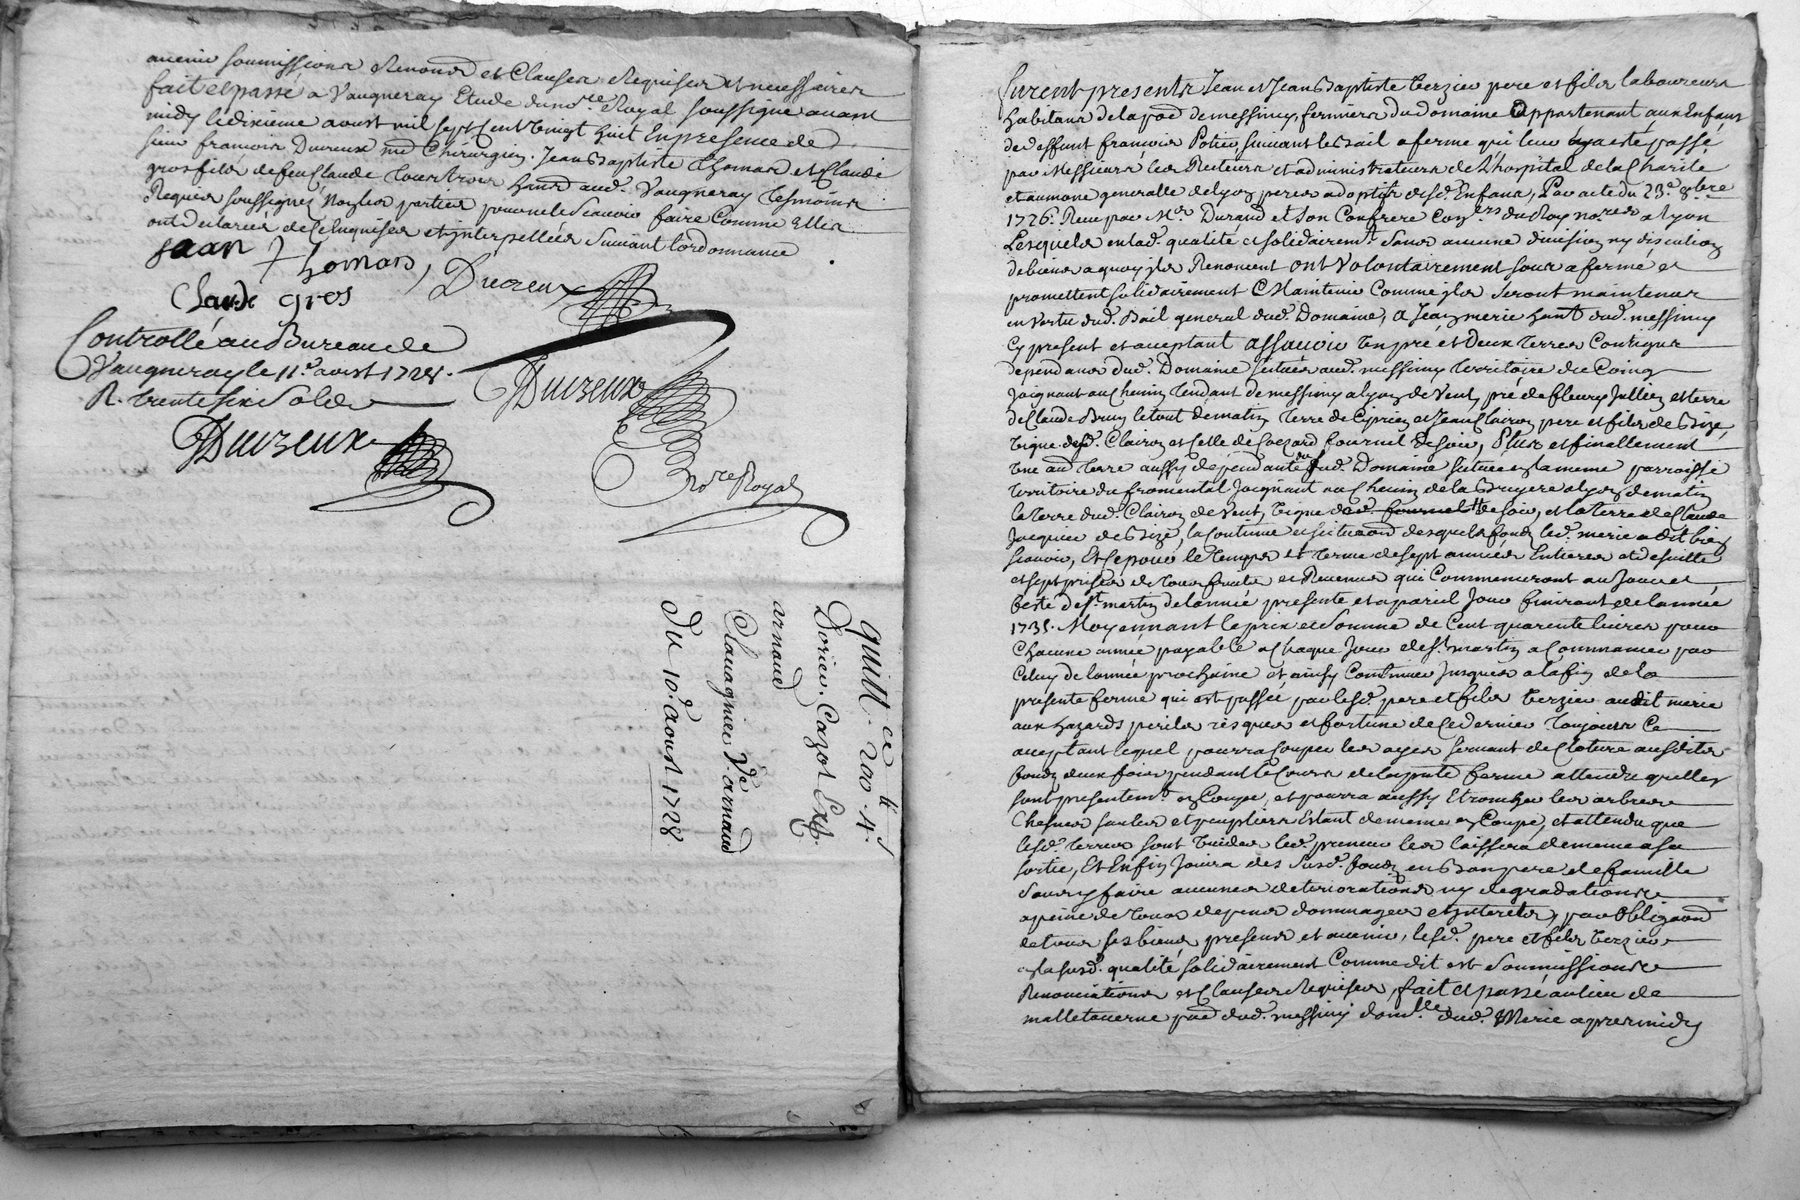 avenir soumissions Renond et Clauses Requises et necessaires
fait et passé a Vaugneray Etude du no.re Royal soussigné avant
midy le dixieme aoust mil sept Cent vingt huit En presence de
sieur francois Ducreux md Chirurgien, Jean Baptiste Thomas et Claude
gros fils de feu Claude hand aud. Vaugneray Tesmoins
Requis soussignés Non les parties pour ne le Scavoir faire Comme Elles
ont declarées de ce Enquises et jnterpellées Suivant l'ordonnance
jean Thomas, Ducreux
Claude gros
Controllé au Bureau de
Vaugneray le 11.e aoust 1728.
R. trente six Solds
Ducreux
Ducreux
No.re Royal
quitt.ce 200.tt 4.s
Cazot
arnaud
Chavagnieu V.e d'arnaud
Du 10.e aoust 1728
Furent presents Jean et Jean Baptiste Terzieu pere et fils laboureurs
habitans de la pod de messimy, fermiers du domaine appartenant aux Enfans
de deffunt francois Potieu, suivant le bail a ferme qui leur a esté passé
par Messieurs les Recteurs et administrateurs de L'hospital de la Charité
et aumone generalle de Lyon peres adoptifs desd. Enfans, Par acte du 23.e 8.bre
1726. Receu par M.e Durand et Son Confrere Con.ers du Roy no.res a Lyon
Lesquels en lad. qualité et solidairem.t Sans aucune division ny discution
de biens a quoy jls Renoncent ont Volontairement sous afermé et
promettent solidairement Maintenir Comme jls Seront maintenus
en vertu dud. Bail general dud. Domaine, a Jean merie han.t dud. messimy
Cy present et acceptant assavoir Un pré et Deux Terres Contigus
dependans dud. Domaine Situés aud. messimy Territoire du Coing
Joignant au Chemin Tendant de messimy a Lyon de Vent, pré de fleury Jullien et terre
de Claude Brun le tout de matin, Terre de Ciprien et Jean Clairon pere et fils de Bize,
Vigne desd. Clairon et Celle de Fournel De soir, Plus et finallement
Une au.e Terre aussy dependante du sud. Domaine Situee en la meme parroisse
Territoire du fromental Joignant au Chemin de la Bruyere a Lyon de matin
la Terre dud. Clairon de Vent, Vigne dud. fournel de soir, et la Terre de Claude
Jacquier de Bize, la Contenue et situaon desquels fonds led. merie a dit bien
scavoir, Et Ce pour le Temps et terme de sept années Entieres et de suitte
et sept prises de Tous fruits et Revenus qui Commenceront au Jour et
feste de s.t martin de lannée presente, et a pareil Jour finiront de lannée
1735. Moyennant le prix et Somme de Cent quarente livres pour
Chacune année payable a Chaque Jour de s.t martin a Commancer par
Celuy de lannée prochaine et ainsy Continuer Jusques a la fin de la
presente ferme qui est passée par lesd. pere et fils Terzieu audit merie
aux hazards perils risques et fortune de Ce dernier Toujours Ce
acceptant lequel pourra Couper les ayes servant de Cloture auxdits
fonds deux fois pendant le Cours de la pnte ferme attendu quelles
sont presentem.t en Coupe, et pourra aussy Etroncher les arbres
Chesnes saules et peupliers Estant de meme en Coupe, et attendu que
lesd. Terres sont Vuides led. preneur les laissera de meme a sa
sortie, Et Enfin Jouira des Susd. fonds en Bon pere de famille
Sans y faire aucunes deteriorations ny degradations
a peine de Tous depens dommages et jnterets, par obligaon
de tous ses biens presens et avenir, lesd. pere et fils Terzieu
a la susd. qualité solidairement Comme dit est Soumissions
Renonciations et Clauses Requises, fait et passé au lieu de
malletaverne pod dud. messimy domi.lle dud. Merie apres midy